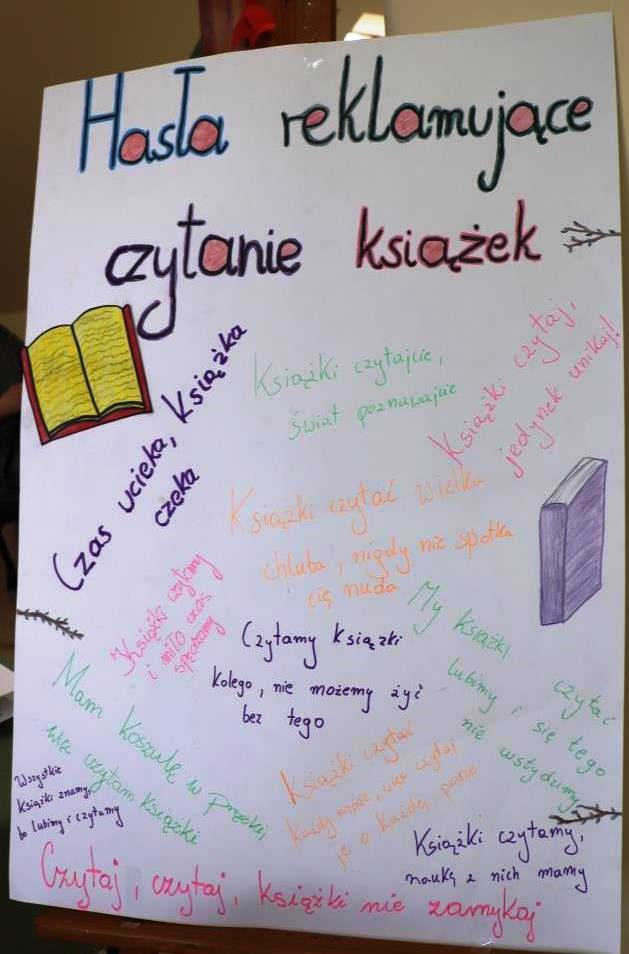 Hasła reklamujące
czytanie książek
Czas ucieka, Książka
czeka
Książki czytajcie,
świat poznawajcie
Książki czytaj,
jedynek unikaj!
Książki czytać wielka
chluba, nigdy nie spotka
cię nuda
Książki czytamy
i miło czas
spędzamy
Czytamy książki
kolego, nie możemy żyć
bez tego
My książki czytać
lubimy, się tego
nie wstydzimy
Mam koszulę w prążki,
więc czytam książki
Wszystkie
książki znamy,
bo lubimy i czytamy
Książki czytać
każdy może, więc czytaj
je o każdej porze
Książki czytamy,
naukę z nich mamy
Czytaj, czytaj, książki nie zamykaj